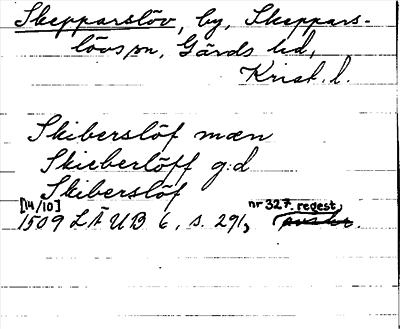 Skepparslöv, by, Skeppars-
lövs sn, Gärds hd,
Krist. l.
Skiberslöf mæn
Skieberlöff g:d
Skiberslöf
[14/10] nr 327. regest,
1509 LÄUB 6, s. 291,